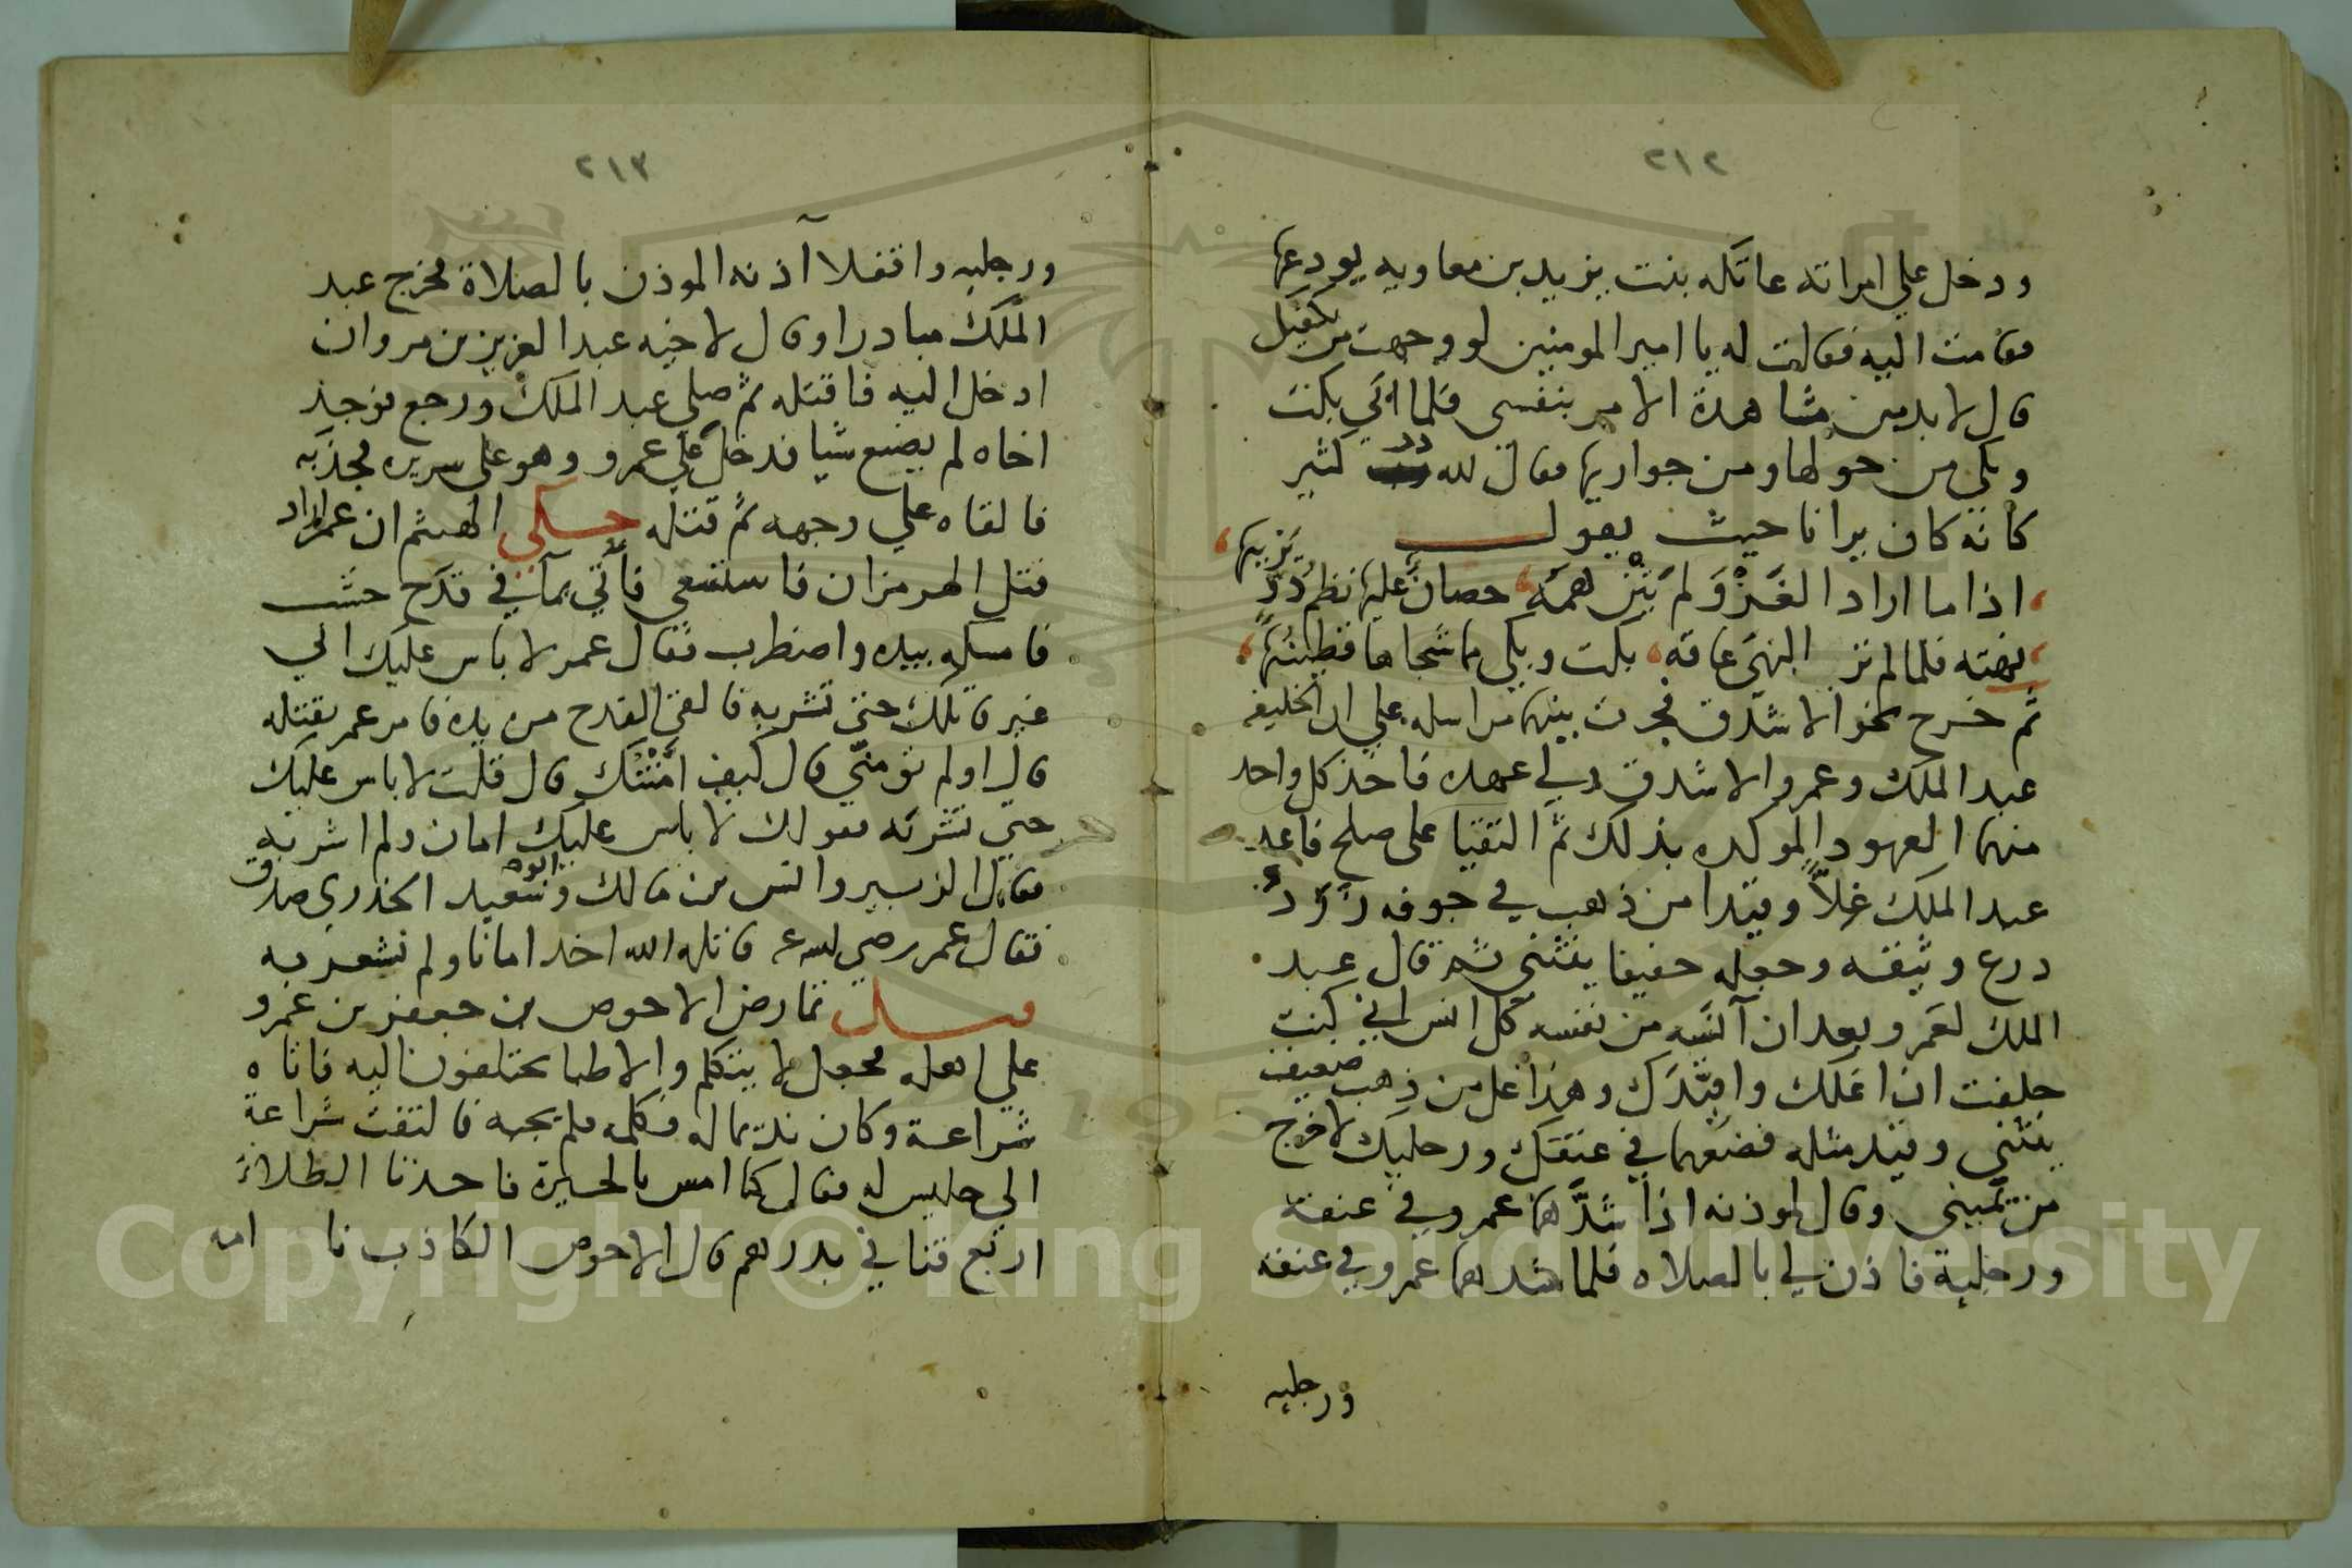 ٢١٢
ودخل علي امراته عاتكه بنت يزيد بن معاويه يودعها
فقامت اليه فقالت له يا امير المومنين لو وجهت من يكفيك
قال لا بد من مشاهدة الامر بنفسى فلما ابي بكت
وبكي من حولها ومن جواريها فقال لله در كثير
كانه كان يرانا حيث يقول
اذا ما اراد الغزو لم يثن همه حصان عليها نظم در يزينها
نهته فلما لم تر النهي عاقه بكت وبكي مما شجاها قطينها
ثم خرج نحو الاشدق فجرت بينهما مراسله علي ان الخليفه
عبد الملك وعمرو الاشدق ولي عهده فاخذ كل واحد
منهما العهود الموكده بذلك ثم التقيا على صلح فاعد
عبد الملك غلا وقيدا من ذهب في جوفه زرد
درع وثيقه وجعله خفيفا ينثني ثم قال عبد
الملك لعمرو بعد ان آنسه من نفسه كل انس اني كنت
حلفت ان اغلك واقيدك وهذا غل من ذهب ضعيف
ينثني وقيد مثله فضعهما في عنقك ورجليك لاخرج
من يميني وقال لموذنه اذا شدهما عمرو في عنقه
ورجليه فاذن لي بالصلاه فلما شدهما عمرو في عنقه
ورجليه
٢١٣
ورجليه واقفلا آذنه الموذن بالصلاة فخرج عبد
الملك مبادرا وقال لاخيه عبد العزيز بن مروان
ادخل اليه فاقتله ثم صلي عبد الملك ورجع فوجد
اخاه لم يصنع شيا فدخل علي عمرو وهو على سريره فجذبه
فالقاه علي وجهه ثم قتله حكى الهيثم ان عمر اراد
قتل الهرمزان فاستسقى فأتي بمآ في قدح خشب
فامسكه بيده واضطرب فقال عمر لا باس عليك اني
غير قاتلك حتى تشربه فالقى القدح من يده فامر عمر بقتله
قال اولم تؤمني قال كيف امنتك قال قلت لا باس عليك
حتى تشربه فقولك لا باس عليك امان ولم اشربه
فقال الزبير وانس بن مالك وابو سعيد الخدري صدق
فقال عمر رضي الله عنه قاتله الله اخذ امانا ولم نشعر به
تمارض الاحوص بن جعفر بن عمرو
علي اهله فجعل لا يتكلم والاطبا يختلفون اليه فاتاه
شراعة وكان نديما له فكلمه فلم يجبه فالتفت شراعة
الي جليس له فقال كنا امس بالحيرة فاخذنا الطلاء
اربع قنا في بدرهم قال الاحوص الكاذب نا امه
Copyright © King Saud University